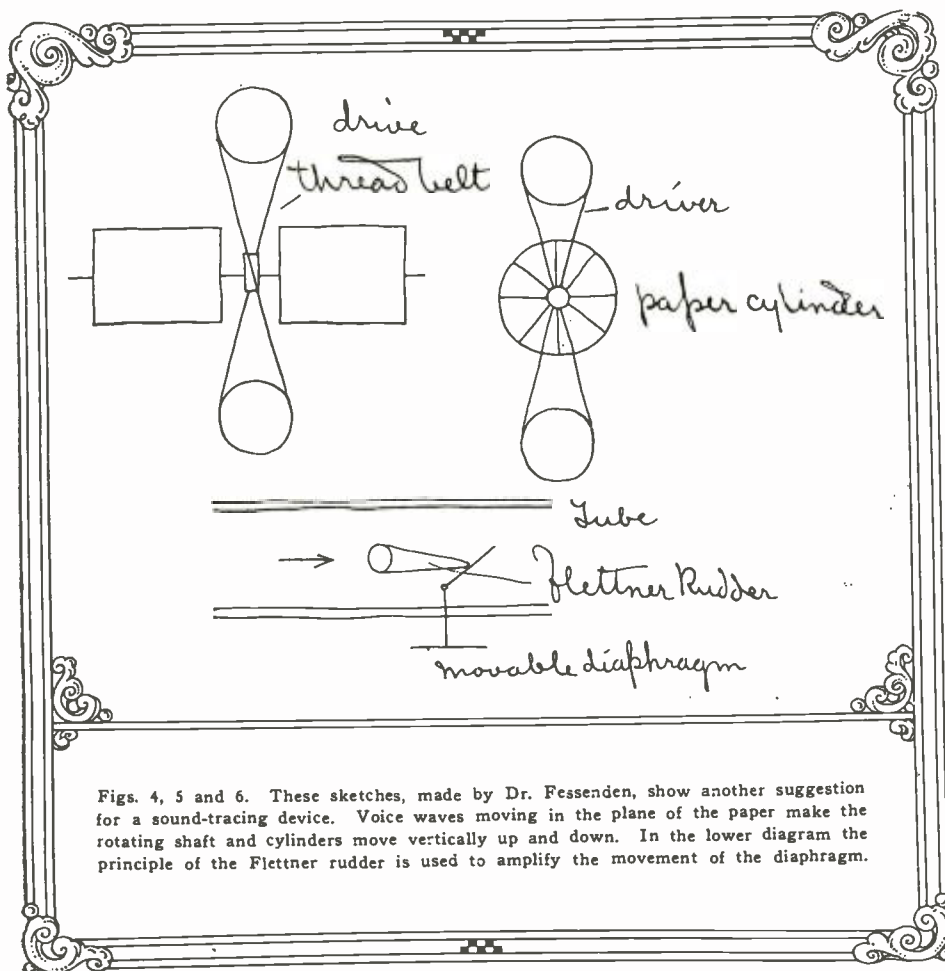 drive
thread belt
driver
paper cylinder
Tube
Flettner Rudder
movable diaphragm
Figs. 4, 5 and 6. These sketches, made by Dr. Fessenden, show another suggestion
for a sound-tracing device. Voice waves moving in the plane of the paper make the
rotating shaft and cylinders move vertically up and down. In the lower diagram the
principle of the Flettner rudder is used to amplify the movement of the diaphragm.